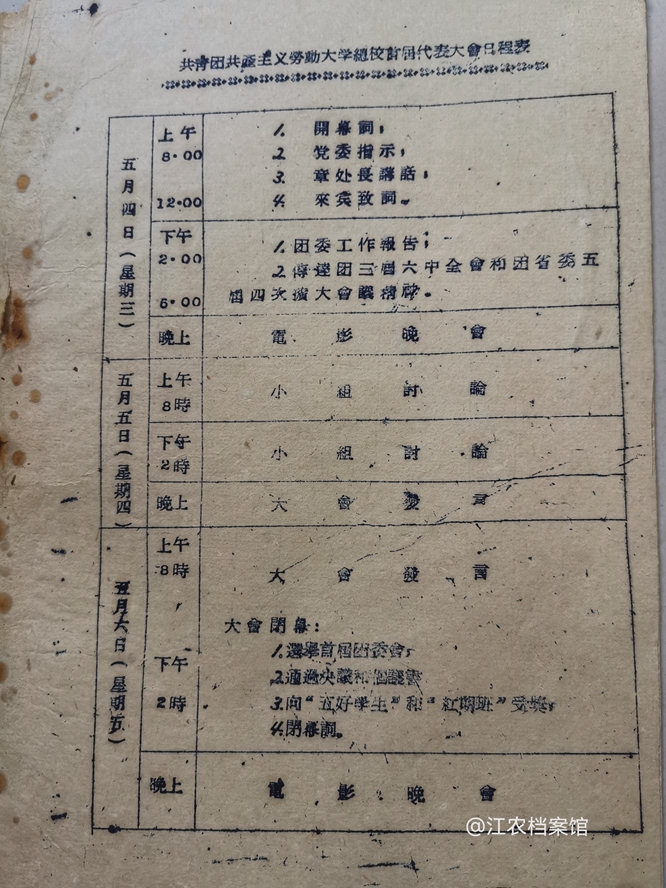 共青团共產主义勞動大学總校首届代表大會日程表
五月四日(星期三)
上午
8.00
12.00
1. 開幕詞;
2 党委指示;
3. 章处長講話;
4. 來宾致詞。
下午
2.00
6.00
1.团委工作報告;
2.傳達团三届六中全會和团省委五
届四次擴大會議精神。
晚上
電影晚會
五月五日(星期四)
上午
8時
小組討論
下午
2時
小組討論
晚上
大會發言
五月六日(星期五)
上午
8時
大會發言
下午
2時
大會閉幕:
1.選舉首届团委會;
2.通過决議和倡議書
3.向“五好学生”和“紅旗班”受獎;
4.閉幕詞。
晚上
電影晚會
@江农档案馆